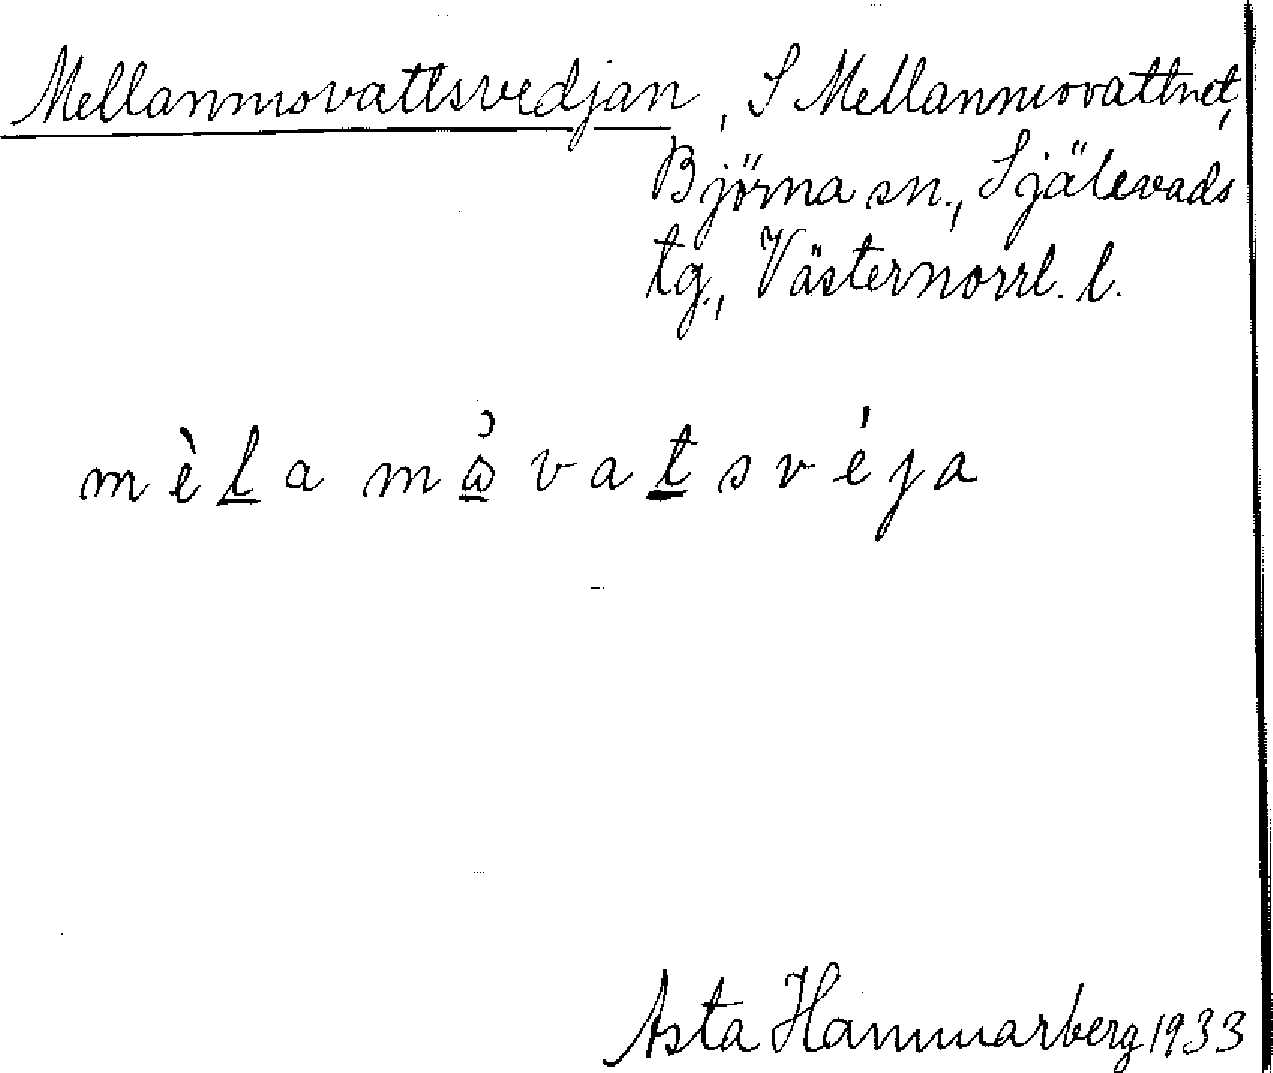 Mellanmovattsvedjan, S Mellanmovattnet,
Björna sn., Själevads
tg., Västernorrl. l.
mèl̲a må̲̀vat̲svéja
Asta Hammarberg 1933